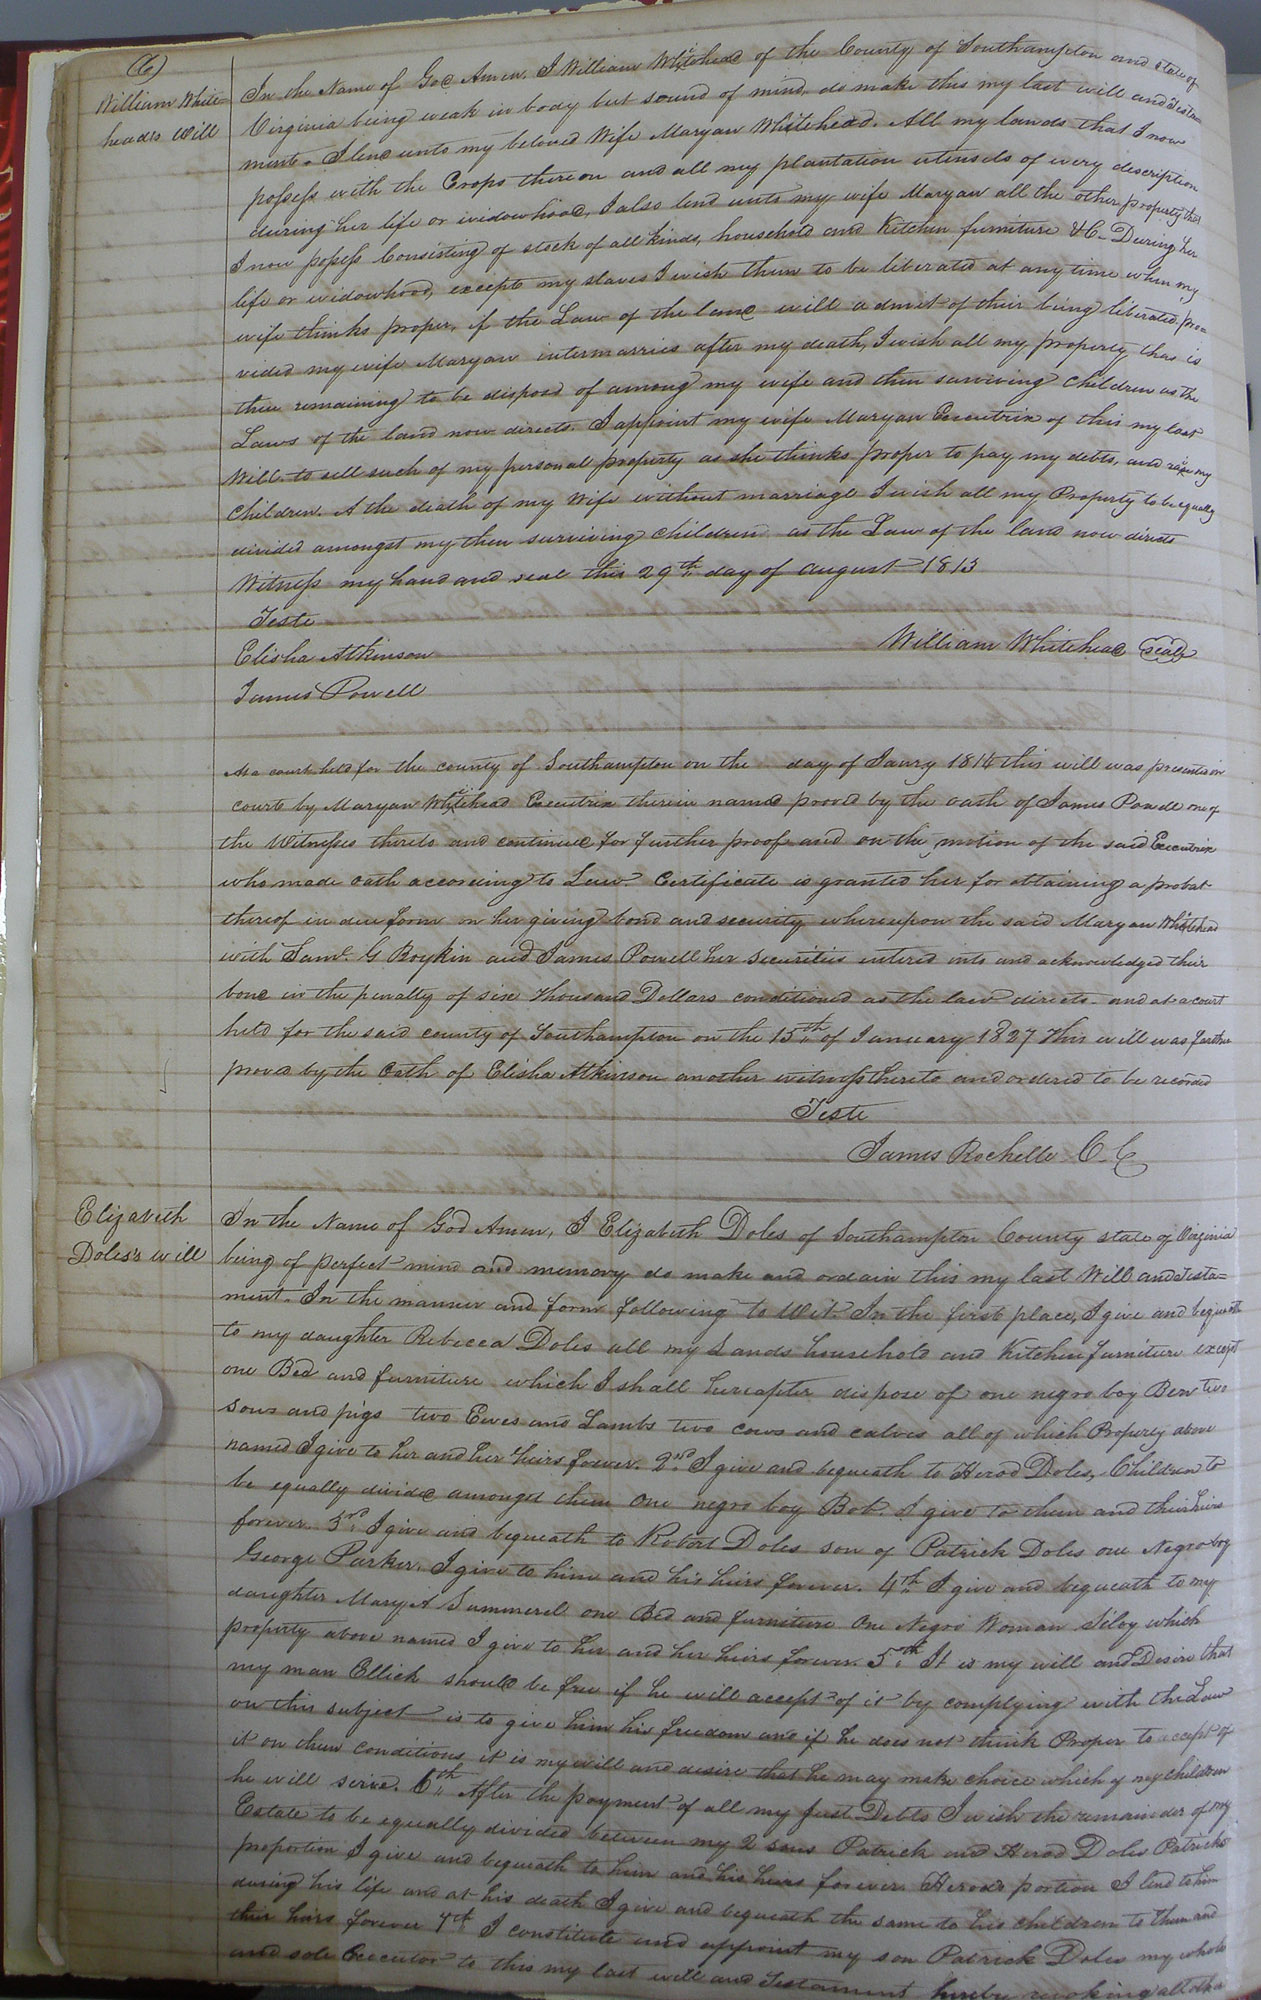 (6)
William White-
heads Will
In the Name of God Amen. I William Whitehead of the County of Southampton and state of
Virginia being weak in body but sound of mind, do make this my last will and Testa
ment. I lend unto my beloved Wife Maryan Whitehead. All my lands that I now
possess with the Crops thereon and all my plantation utensils of every description
during her life or widowhood, I also lend unto my wife Maryan all the other property that
I now possess Consisting of stock of all kinds, household and Kitchen furniture &C- During her
life or widowhood, except my slaves I wish them to be liberated at any time when my
wife thinks proper, if the Law of the land will admit of their being liberated, pro=
vided my wife Maryan intermarries after my death, I wish all my property that is
then remaining to be disposd of among my wife and then surviving Children as the
Laws of the land now directs. I appoint my wife Maryan Executrix of this my last
Will. to sell such of my personal property as she thinks proper to pay my debts, and raise my
Children. A the death of my Wife without marriage I wish all my Property to be equally
divided amongst my then surviving Children as the Law of the land now directs
Witness my hand and seal this 29th day of August 1813
Teste
Elisha Atkinson
William Whitehead seal
James Powell
At a court held for the county of Southampton on the day of Jaury 1814 this will was presented in
court by Maryan Whitehead Executrix therein named proved by the oath of James Powell one of
the Witnesses thereto and continued for further proof and on the motion of the said Executrix
who made oath according to Law Certificate is granted her for obtaining a probat
thereof in due form on her giving bond and security whereupon the said Maryan Whitehead
with Saml G Boykin and James Powell her Securities entered into and acknowledged their
bond in the penalty of six Thousand Dollars conditioned as the law directs- and at a court
held for the said county of Southampton on the 15th of January 1827 This will was further
proved by the Oath of Elisha Atkinson another witness thereto and ordered to be recorded
Teste
James Rochelle C. C
Elizabeth
Doles's will
In the Name of God Amen, I Elizabeth Doles of Southampton County state of Virginia
being of perfect mind and memory do make and ordain this my last Will and Testa=
ment. In the manner and form following to Wit. In the first place, I give and bequeath
to my daughter Rebecca Doles all my Lands household and Kitchen furniture except
one Bed and furniture which I shall hereafter dispose of one negro boy Ben two
sows and pigs two Ewes and Lambs two cows and calves all of which Property above
named I give to her and her heirs forever. 2nd I give and bequeath to Herod Doles, Children to
be equally divided amongst them One negro boy Bob. I give to them and their heirs
forever. 3rd I give and bequeath to Robert Doles son of Patrick Doles one Negro boy
George Parker, I give to him and his heirs forever. 4th I give and bequeath to my
daughter Mary A Summerel one Bed and furniture One Negro Woman Silvy which
property above named I give to her and her heirs forever. 5th It is my will and Desire that
my man Ellick should be free if he will accept of it by complying with the Law
on this subject is to give him his freedom and if he does not think Proper to accept of
it on them conditions it is my will and desire that he may make choice which of my children
he will serve. 6th After the payment of all my just Debts I wish the remainder of my
Estate to be equally divided between my 2 sons Patrick and Herod Doles Patricks
proportion I give and bequeath to him and his heirs forever. Herods portion I lend to him
during his life and at his death I give and bequeath the same to his children to them and
their heirs forever 7th I constitute and appoint my son Patrick Doles my whole
and sole Executor to this my last will and Testament hereby revoking all other